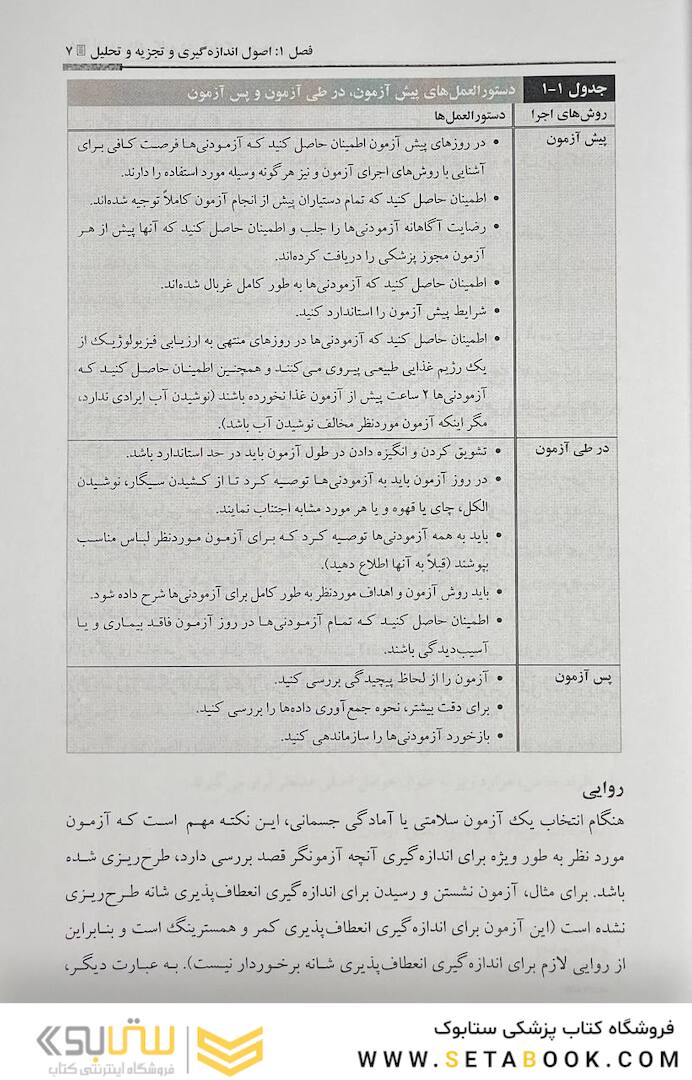 فصل ۱: اصول اندازه‌گیری و تجزیه و تحلیل ۷
جدول ۱-۱ دستورالعمل‌های پیش آزمون، در طی آزمون و پس آزمون
روش‌های اجرا دستورالعمل‌ها
پیش آزمون • در روزهای پیش آزمون اطمینان حاصل کنید که آزمودنی‌ها فرصت کافی برای
آشنایی با روش‌های اجرای آزمون و نیز هرگونه وسیله مورد استفاده را دارند.
• اطمینان حاصل کنید که تمام دستیاران پیش از انجام آزمون کاملاً توجیه شده‌اند.
• رضایت آگاهانه آزمودنی‌ها را جلب و اطمینان حاصل کنید که آنها پیش از هر
آزمون مجوز پزشکی را دریافت کرده‌اند.
• اطمینان حاصل کنید که آزمودنی‌ها به طور کامل غربال شده‌اند.
• شرایط پیش آزمون را استاندارد کنید.
• اطمینان حاصل کنید که آزمودنی‌ها در روزهای منتهی به ارزیابی فیزیولوژیک از
یک رژیم غذایی طبیعی پیروی می‌کنند و همچنین اطمینان حاصل کنید که
آزمودنی‌ها ۲ ساعت پیش از آزمون غذا نخورده باشند (نوشیدن آب ایرادی ندارد،
مگر اینکه آزمون موردنظر مخالف نوشیدن آب باشد).
در طی آزمون • تشویق کردن و انگیزه دادن در طول آزمون باید در حد استاندارد باشد.
• در روز آزمون باید به آزمودنی‌ها توصیه کرد تا از کشیدن سیگار، نوشیدن
الکل، چای یا قهوه و یا هر مورد مشابه اجتناب نمایند.
• باید به همه آزمودنی‌ها توصیه کرد که برای آزمون موردنظر لباس مناسب
بپوشند (قبلاً به آنها اطلاع دهید).
• باید روش آزمون و اهداف موردنظر به طور کامل برای آزمودنی‌ها شرح داده شود.
• اطمینان حاصل کنید که تمام آزمودنی‌ها در روز آزمون فاقد بیماری و یا
آسیب‌دیدگی باشند.
پس آزمون • آزمون را از لحاظ پیچیدگی بررسی کنید.
• برای دقت بیشتر، نحوه جمع‌آوری داده‌ها را بررسی کنید.
• بازخورد آزمودنی‌ها را سازماندهی کنید.
روایی
هنگام انتخاب یک آزمون سلامتی یا آمادگی جسمانی، این نکته مهم است که آزمون
مورد نظر به طور ویژه برای اندازه‌گیری آنچه آزمونگر قصد بررسی دارد، طرح‌ریزی شده
باشد. برای مثال، آزمون نشستن و رسیدن برای اندازه‌گیری انعطاف‌پذیری شانه طرح‌ریزی
نشده است (این آزمون برای اندازه‌گیری انعطاف‌پذیری کمر و همسترینگ است و بنابراین
از روایی لازم برای اندازه‌گیری انعطاف‌پذیری شانه برخوردار نیست). به عبارت دیگر،
فروشگاه کتاب پزشکی ستابوک
WWW.SETABOOK.COM
ستابوک
فروشگاه اینترنتی کتاب